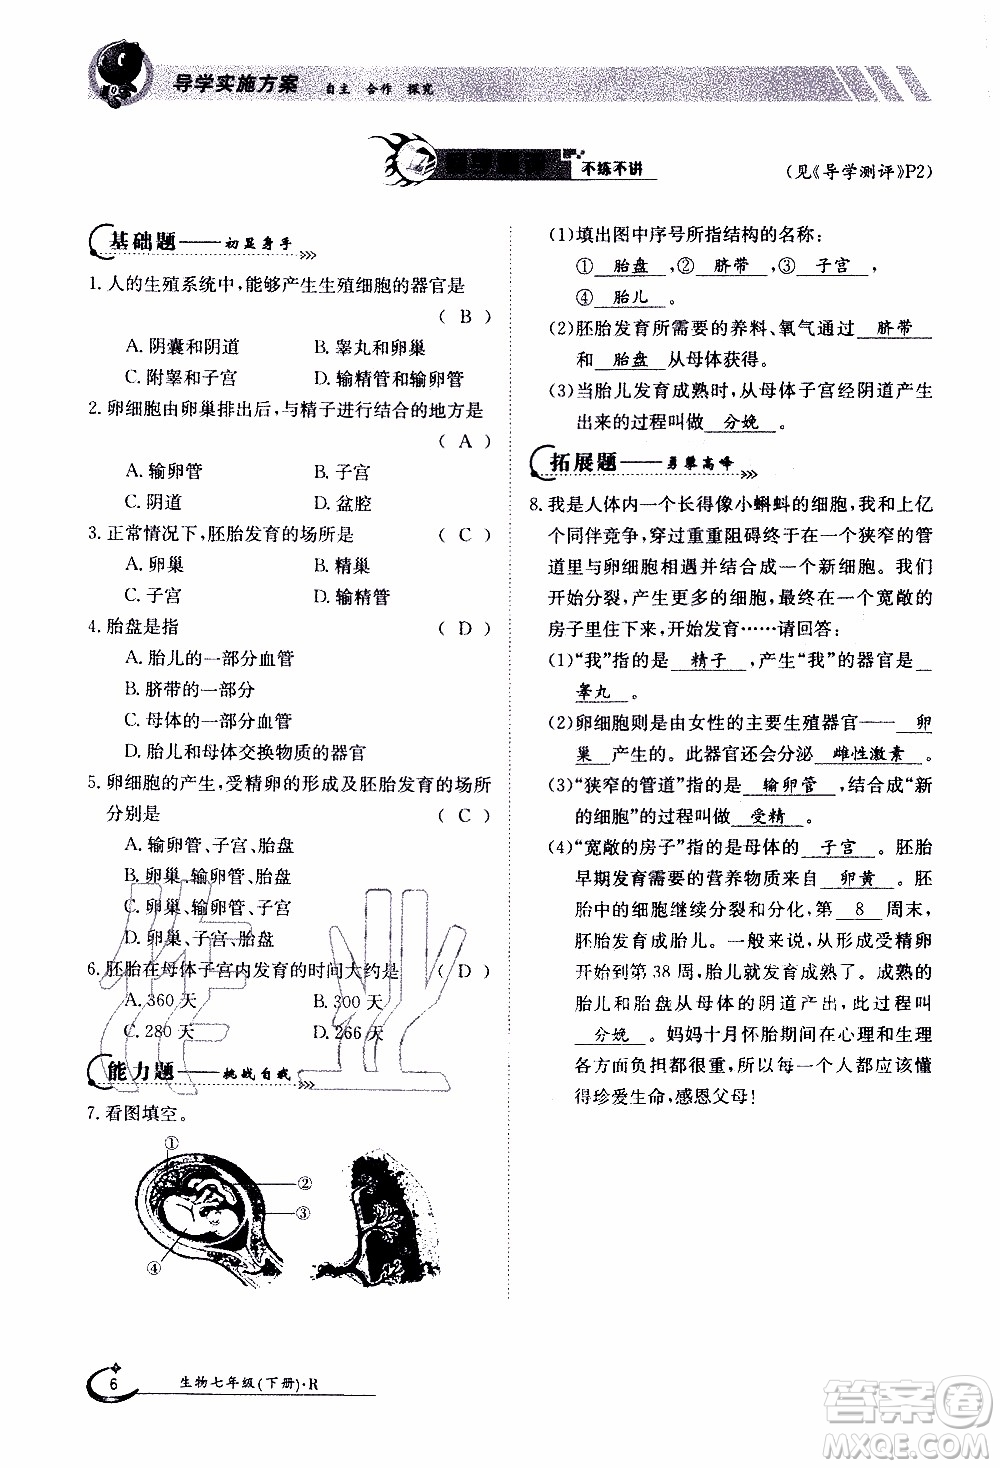 导学实施方案 自主 合作 探究
不练不讲
(见《导学测评》P2)
基础题——初显身手
1. 人的生殖系统中,能够产生生殖细胞的器官是
( B )
A. 阴囊和阴道 B. 睾丸和卵巢
C. 附睾和子宫 D. 输精管和输卵管
2. 卵细胞由卵巢排出后,与精子进行结合的地方是
( A )
A. 输卵管 B. 子宫
C. 阴道 D. 盆腔
3. 正常情况下,胚胎发育的场所是 ( C )
A. 卵巢 B. 精巢
C. 子宫 D. 输精管
4. 胎盘是指 ( D )
A. 胎儿的一部分血管
B. 脐带的一部分
C. 母体的一部分血管
D. 胎儿和母体交换物质的器官
5. 卵细胞的产生,受精卵的形成及胚胎发育的场所
分别是 ( C )
A. 输卵管、子宫、胎盘
B. 卵巢、输卵管、胎盘
C. 卵巢、输卵管、子宫
D. 卵巢、子宫、胎盘
6. 胚胎在母体子宫内发育的时间大约是 ( D )
A. 360 天 B. 300 天
C. 280 天 D. 266 天
能力题——挑战自我
7. 看图填空。
①
②
③
④
(1)填出图中序号所指结构的名称:
① 胎盘 ,② 脐带 ,③ 子宫 ,
④ 胎儿 。
(2)胚胎发育所需要的养料、氧气通过 脐带
和 胎盘 从母体获得。
(3)当胎儿发育成熟时,从母体子宫经阴道产生
出来的过程叫做 分娩 。
拓展题——勇攀高峰
8. 我是人体内一个长得像小蝌蚪的细胞,我和上亿
个同伴竞争,穿过重重阻碍终于在一个狭窄的管
道里与卵细胞相遇并结合成一个新细胞。我们
开始分裂,产生更多的细胞,最终在一个宽敞的
房子里住下来,开始发育……请回答:
(1)“我”指的是 精子 ,产生“我”的器官是
睾丸 。
(2)卵细胞则是由女性的主要生殖器官—— 卵
巢 产生的。此器官还会分泌 雌性激素 。
(3)“狭窄的管道”指的是 输卵管 ,结合成“新
的细胞”的过程叫做 受精 。
(4)“宽敞的房子”指的是母体的 子宫 。胚胎
早期发育的营养物质来自 卵黄 。胚
胎中的细胞继续分裂和分化,第 8 周末,
胚胎发育成胎儿。一般来说,从形成受精卵
开始到第 38 周,胎儿就发育成熟。成熟的
胎儿和胎盘从母体的阴道产出,此过程叫
分娩 。妈妈十月怀胎期间在心理和生理
各方面负担都很重,我们每个人都应该懂
得珍爱生命,感恩父母!
作业
6 生物七年级(下册)·R
答案圈
MXQE.COM